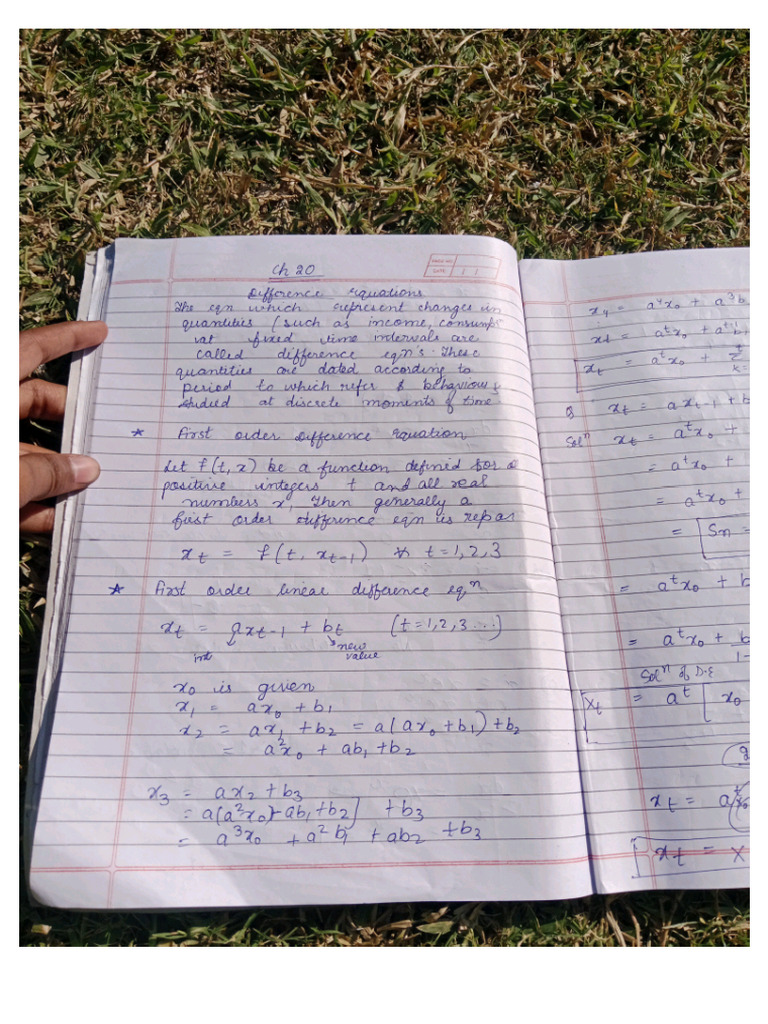 Ch 20
PAGE NO.
DATE
Difference Equations
The eqn which represent changes in
quantities (such as income, consump
at fixed time intervals are
called difference eqn's. These
quantities are dated according to
period to which refer & behaviour is
studied at discrete moments of time
* First order Difference Equation
Let f(t, x) be a function defined for
positive integers t and all real
numbers x, Then generally a
first order difference eqn is
x_t = f(t, x_{t-1}) ∀ t = 1, 2, 3
* First order linear difference eq^n
x_t = ax_{t-1} + b_t (t = 1, 2, 3 ...)
new
value
x_0 is given
x_1 = ax_0 + b_1
x_2 = ax_1 + b_2 = a(ax_0 + b_1) + b_2
= a^2x_0 + ab_1 + b_2
x_3 = ax_2 + b_3
= a(a^2x_0 + ab_1 + b_2] + b_3
= a^3x_0 + a^2b_1 + ab_2 + b_3
x_4 = a^4x_0 + a^3b
x_t = a^tx_0 + a^{t-1}b_1
x_t = a^tx_0 + Σ
Q x_t = ax_{t-1} + b
Sol^n x_t = a^tx_0 +
= a^tx_0 +
= a^tx_0 +
= [Sn =
= a^tx_0 + b
= a^tx_0 + b
1-
Sol^n of D.E
x_t = a^t [x_0
x_t = a^t(x_0
x_t = x